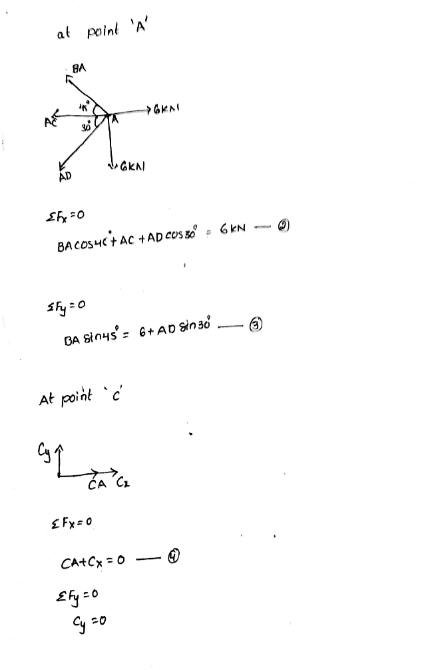 at point 'A'
BA
45°
AC
A
6KN
30°
AD
6KN
ΣFx=0
BA cos45°+ AC + AD cos30° = 6 KN — ②
ΣFy=0
BA sin45° = 6+ AD sin30° — ③
At point 'C'
Cy
CA Cx
ΣFx=0
CA+Cx=0 — ④
ΣFy=0
Cy=0